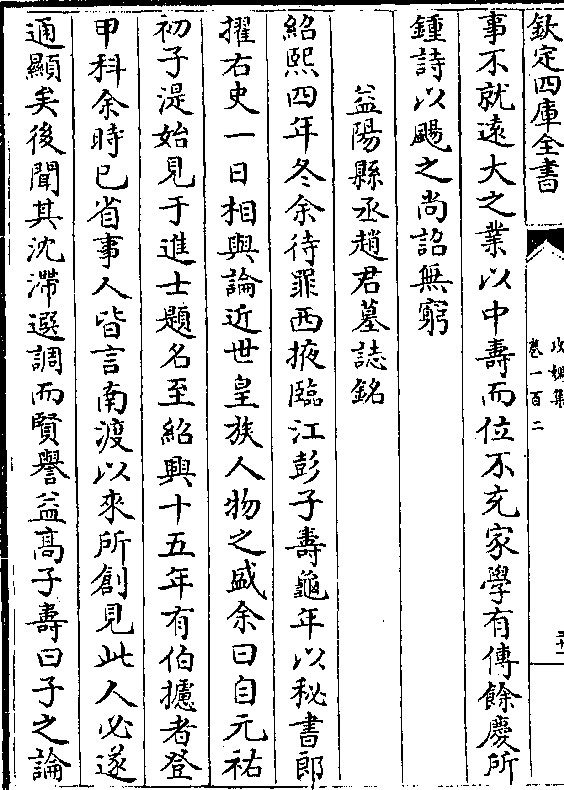 欽定四庫全書
攻媿集
卷一百二
事不就遠大之業以中壽而位不充家學有傳餘慶所
鍾詩以颺之尚詔無窮
益陽縣丞趙君墓誌銘
紹熙四年冬余待罪西掖臨江彭子壽龜年以秘書郎
擢右史一日相與論近世皇族人物之盛余曰自元祐
初子湜始見于進士題名至紹興十五年有伯攄者登
甲科余時已省事人皆言南渡以來所創見此人必遂
通顯矣後聞其沈滯遐調而賢譽益高子壽曰子之論